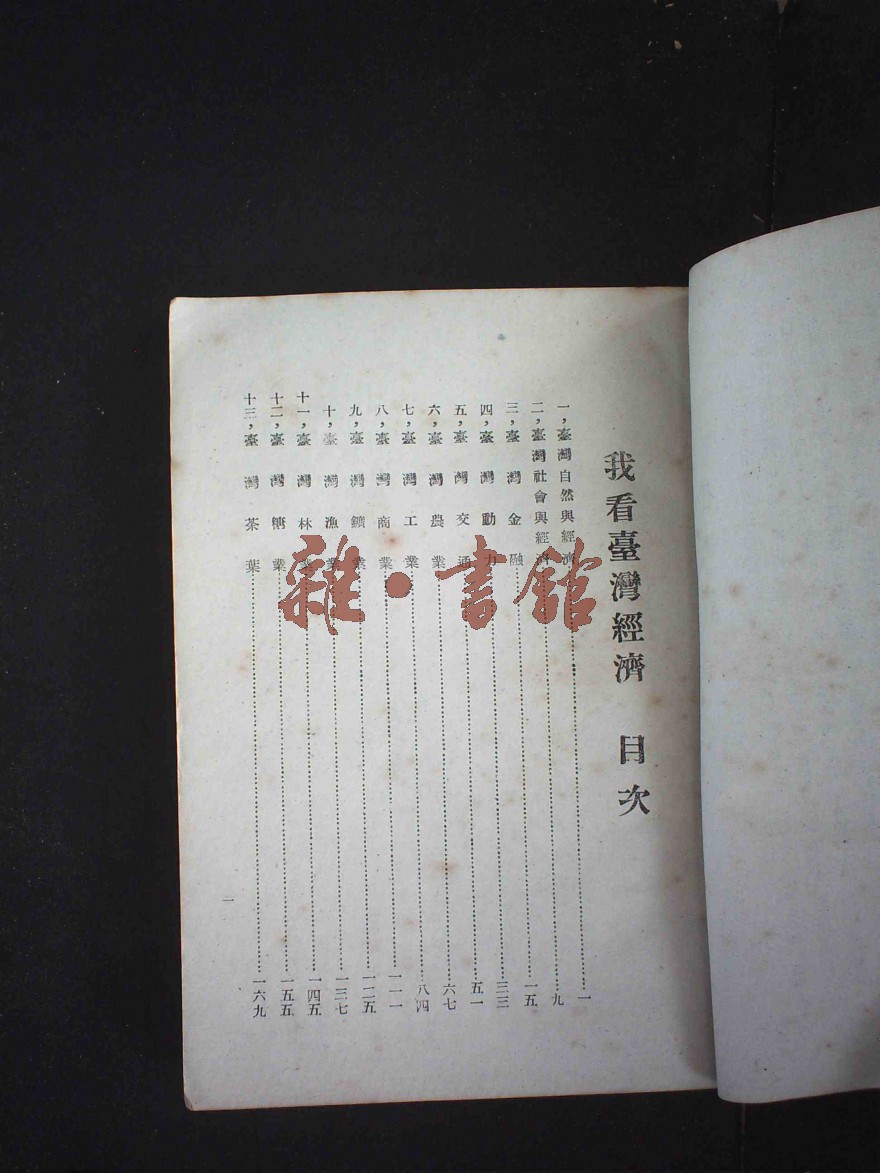 我看臺灣經濟　目次
一，臺灣自然與經濟……一
二，臺灣社會與經濟……九
三，臺灣金融……一五
四，臺灣動力……三三
五，臺灣交通……五一
六，臺灣農業……六七
七，臺灣工業……八四
八，臺灣商業……一一一
九，臺灣鑛業……一二五
十，臺灣漁業……一三七
十一，臺灣林業……一四五
十二，臺灣糖業……一五五
十三，臺灣茶葉……一六九
一
雜·書館